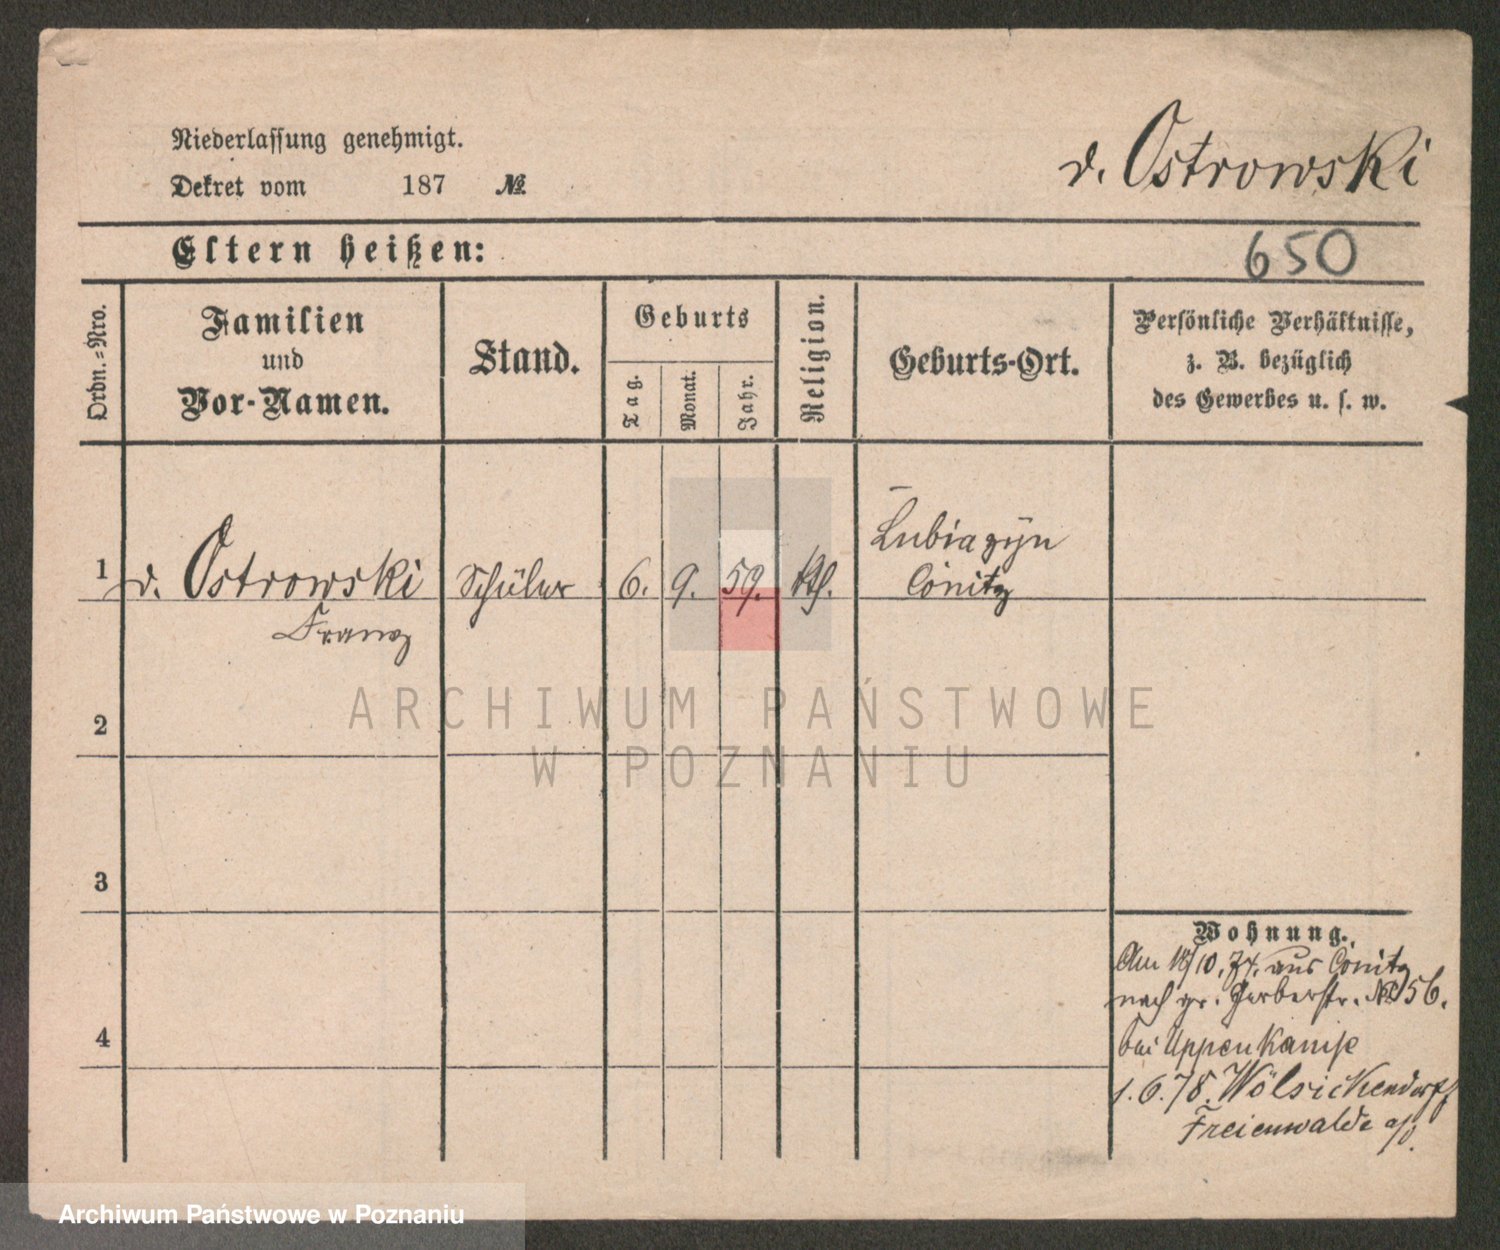 Niederlassung genehmigt.
Dekret vom 187 №
v. Ostrowski
Eltern heißen:
650
Ordn.=Nro.
Familien
und
Vor-Namen.
Stand.
Geburts
Tag.
Monat.
Jahr.
Religion.
Geburts-Ort.
Persönliche Verhältnisse,
z. B. bezüglich
des Gewerbes u. s. w.
1 v. Ostrowski Schüler 6. 9. 59. kth. Lubiazyn
Franz
Conitz
2
3
4
Wohnung.
Am /10. 74. aus Conitz
nach gr. Gerberstr. № 56.
bei Uppenkamp
1.6.78. Wölsickendorff
Freienwalde a/O.
ARCHIWUM PAŃSTWOWE
W POZNANIU
Archiwum Państwowe w Poznaniu